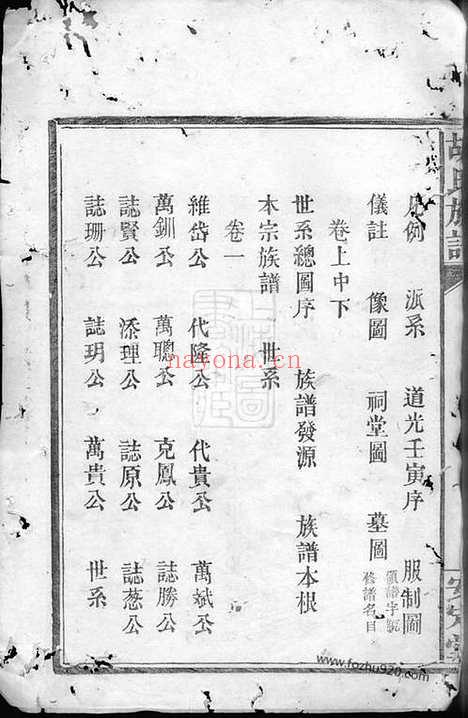 胡氏族譜
凡例 派系 道光壬寅序 服制圖
儀註 像圖 祠堂圖 墓圖 領譜字號 修譜名目
卷上中下
世系總圖序 族譜發源 族譜本根
本宗族譜 世系
卷一
維岱公 代隆公 代貴公 萬斌公
萬釧公 萬聰公 克鳳公 誌勝公
誌賢公 添理公 誌原公 誌葱公
誌珊公 誌玥公 萬貴公 世系
nayona.cn
www.fozhu920.com